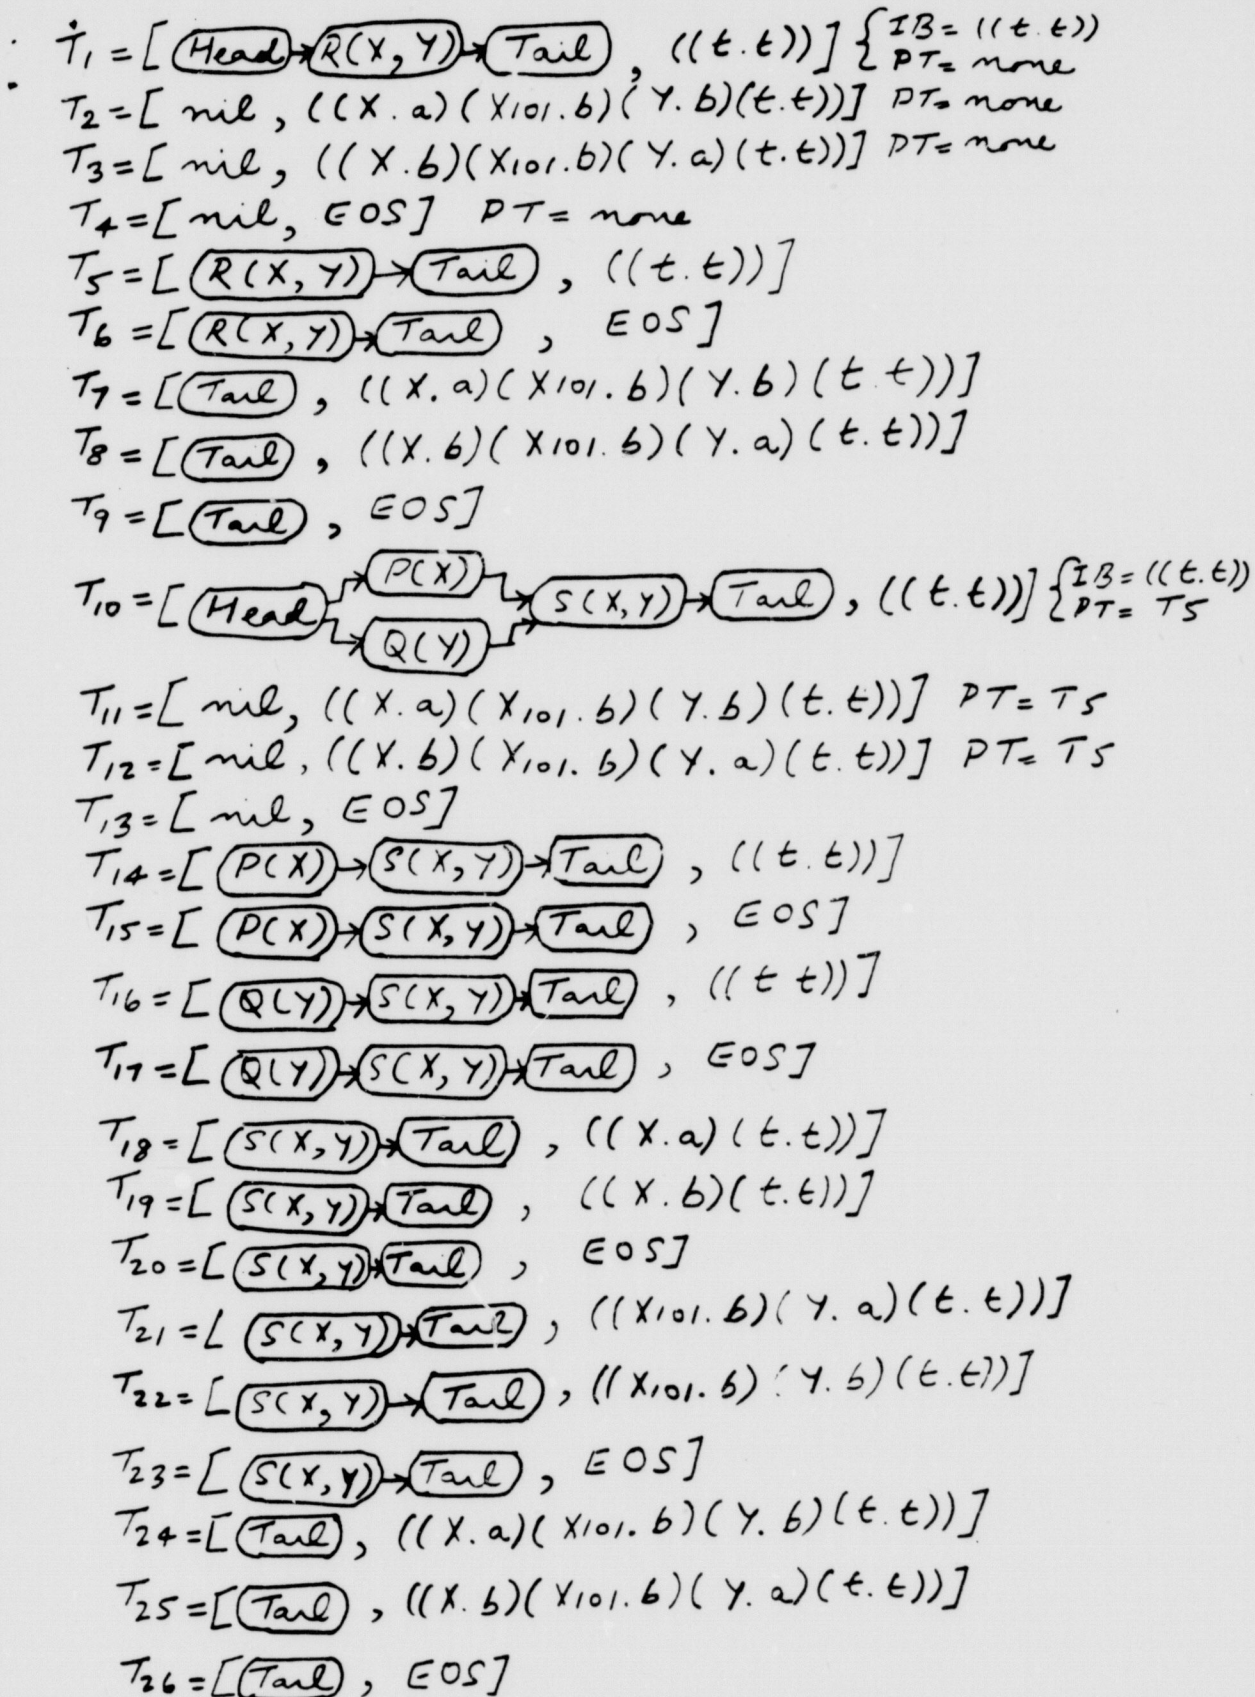 T1 = [ Head → R(X, Y) → Tail , ((t.t)) ] { IB = ((t.t))
PT = none
T2 = [ nil , ((X.a)(X101.b)(Y.b)(t.t))] PT = none
T3 = [ nil , ((X.b)(X101.b)(Y.a)(t.t))] PT = none
T4 = [ nil, EOS] PT = none
T5 = [ R(X, Y) → Tail , ((t.t))]
T6 = [ R(X, Y) → Tail , EOS]
T7 = [ Tail , ((X.a)(X101.b)(Y.b)(t.t))]
T8 = [ Tail , ((X.b)(X101.b)(Y.a)(t.t))]
T9 = [ Tail , EOS]
T10 = [ Head → P(X) → Q(Y) → S(X,Y) → Tail , ((t.t))] { IB = ((t.t))
PT = T5
T11 = [ nil, ((X.a)(X101.b)(Y.b)(t.t))] PT = T5
T12 = [ nil, ((X.b)(X101.b)(Y.a)(t.t))] PT = T5
T13 = [ nil, EOS]
T14 = [ P(X) → S(X,Y) → Tail , ((t.t))]
T15 = [ P(X) → S(X,Y) → Tail , EOS]
T16 = [ Q(Y) → S(X,Y) → Tail , ((t t))]
T17 = [ Q(Y) → S(X,Y) → Tail , EOS]
T18 = [ S(X,Y) → Tail , ((X.a)(t.t))]
T19 = [ S(X,Y) → Tail , ((X.b)(t.t))]
T20 = [ S(X,Y) → Tail , EOS]
T21 = [ S(X,Y) → Tail , ((X101.b)(Y.a)(t.t))]
T22 = [ S(X,Y) → Tail , ((X101.b)(Y.b)(t.t))]
T23 = [ S(X,Y) → Tail , EOS]
T24 = [ Tail , ((X.a)(X101.b)(Y.b)(t.t))]
T25 = [ Tail , ((X.b)(X101.b)(Y.a)(t.t))]
T26 = [ Tail , EOS]